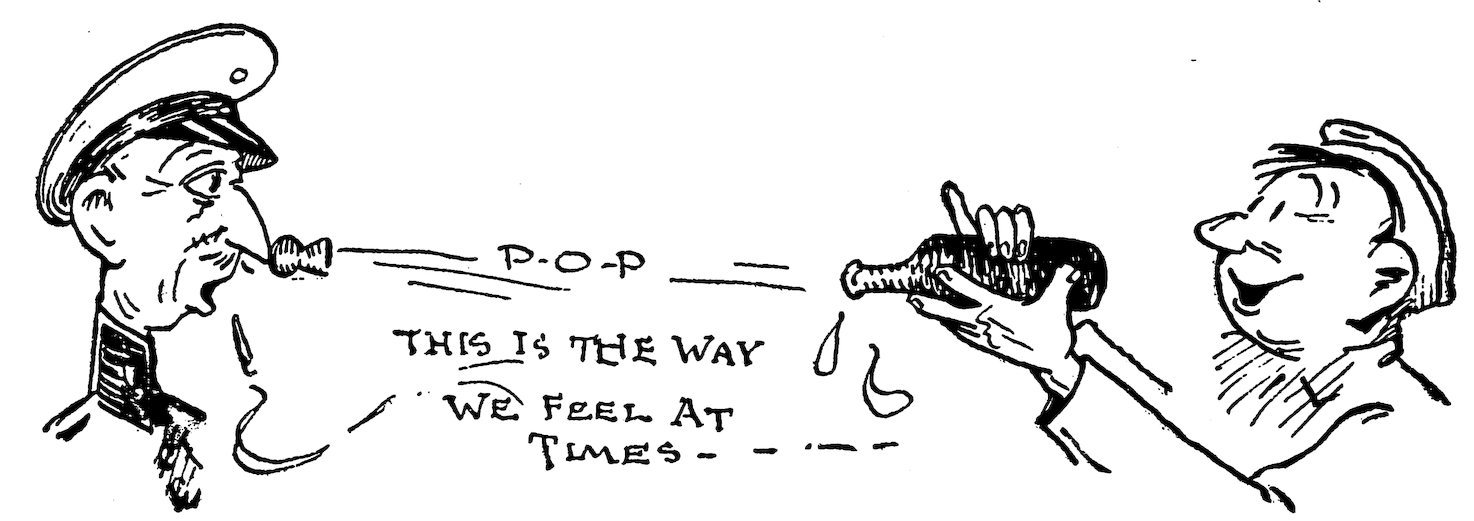 P-O-P
THIS IS THE WAY
WE FEEL AT
TIMES- - - - -